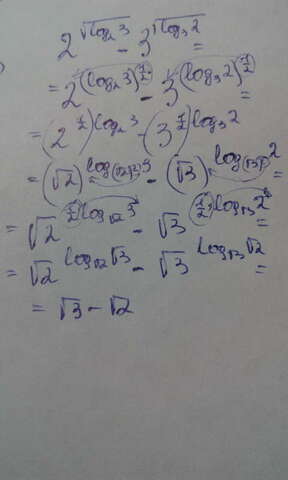 2^{\sqrt{log_2 3}} - 3^{\sqrt{log_3 2}} =
= 2^{(log_2 3)^{1/2}} - 3^{(log_3 2)^{1/2}} =
= (2^{1/2})^{log_2 3} - (3^{1/2})^{log_3 2}
= (√2)^{log_{(√2)^2} 3} - (√3)^{log_{(√3)^2} 2} =
= √2^{1/2 log_{√2} 3} - √3^{1/2 log_{√3} 2} =
= √2^{log_{√2} √3} - √3^{log_{√3} √2} =
= √3 - √2